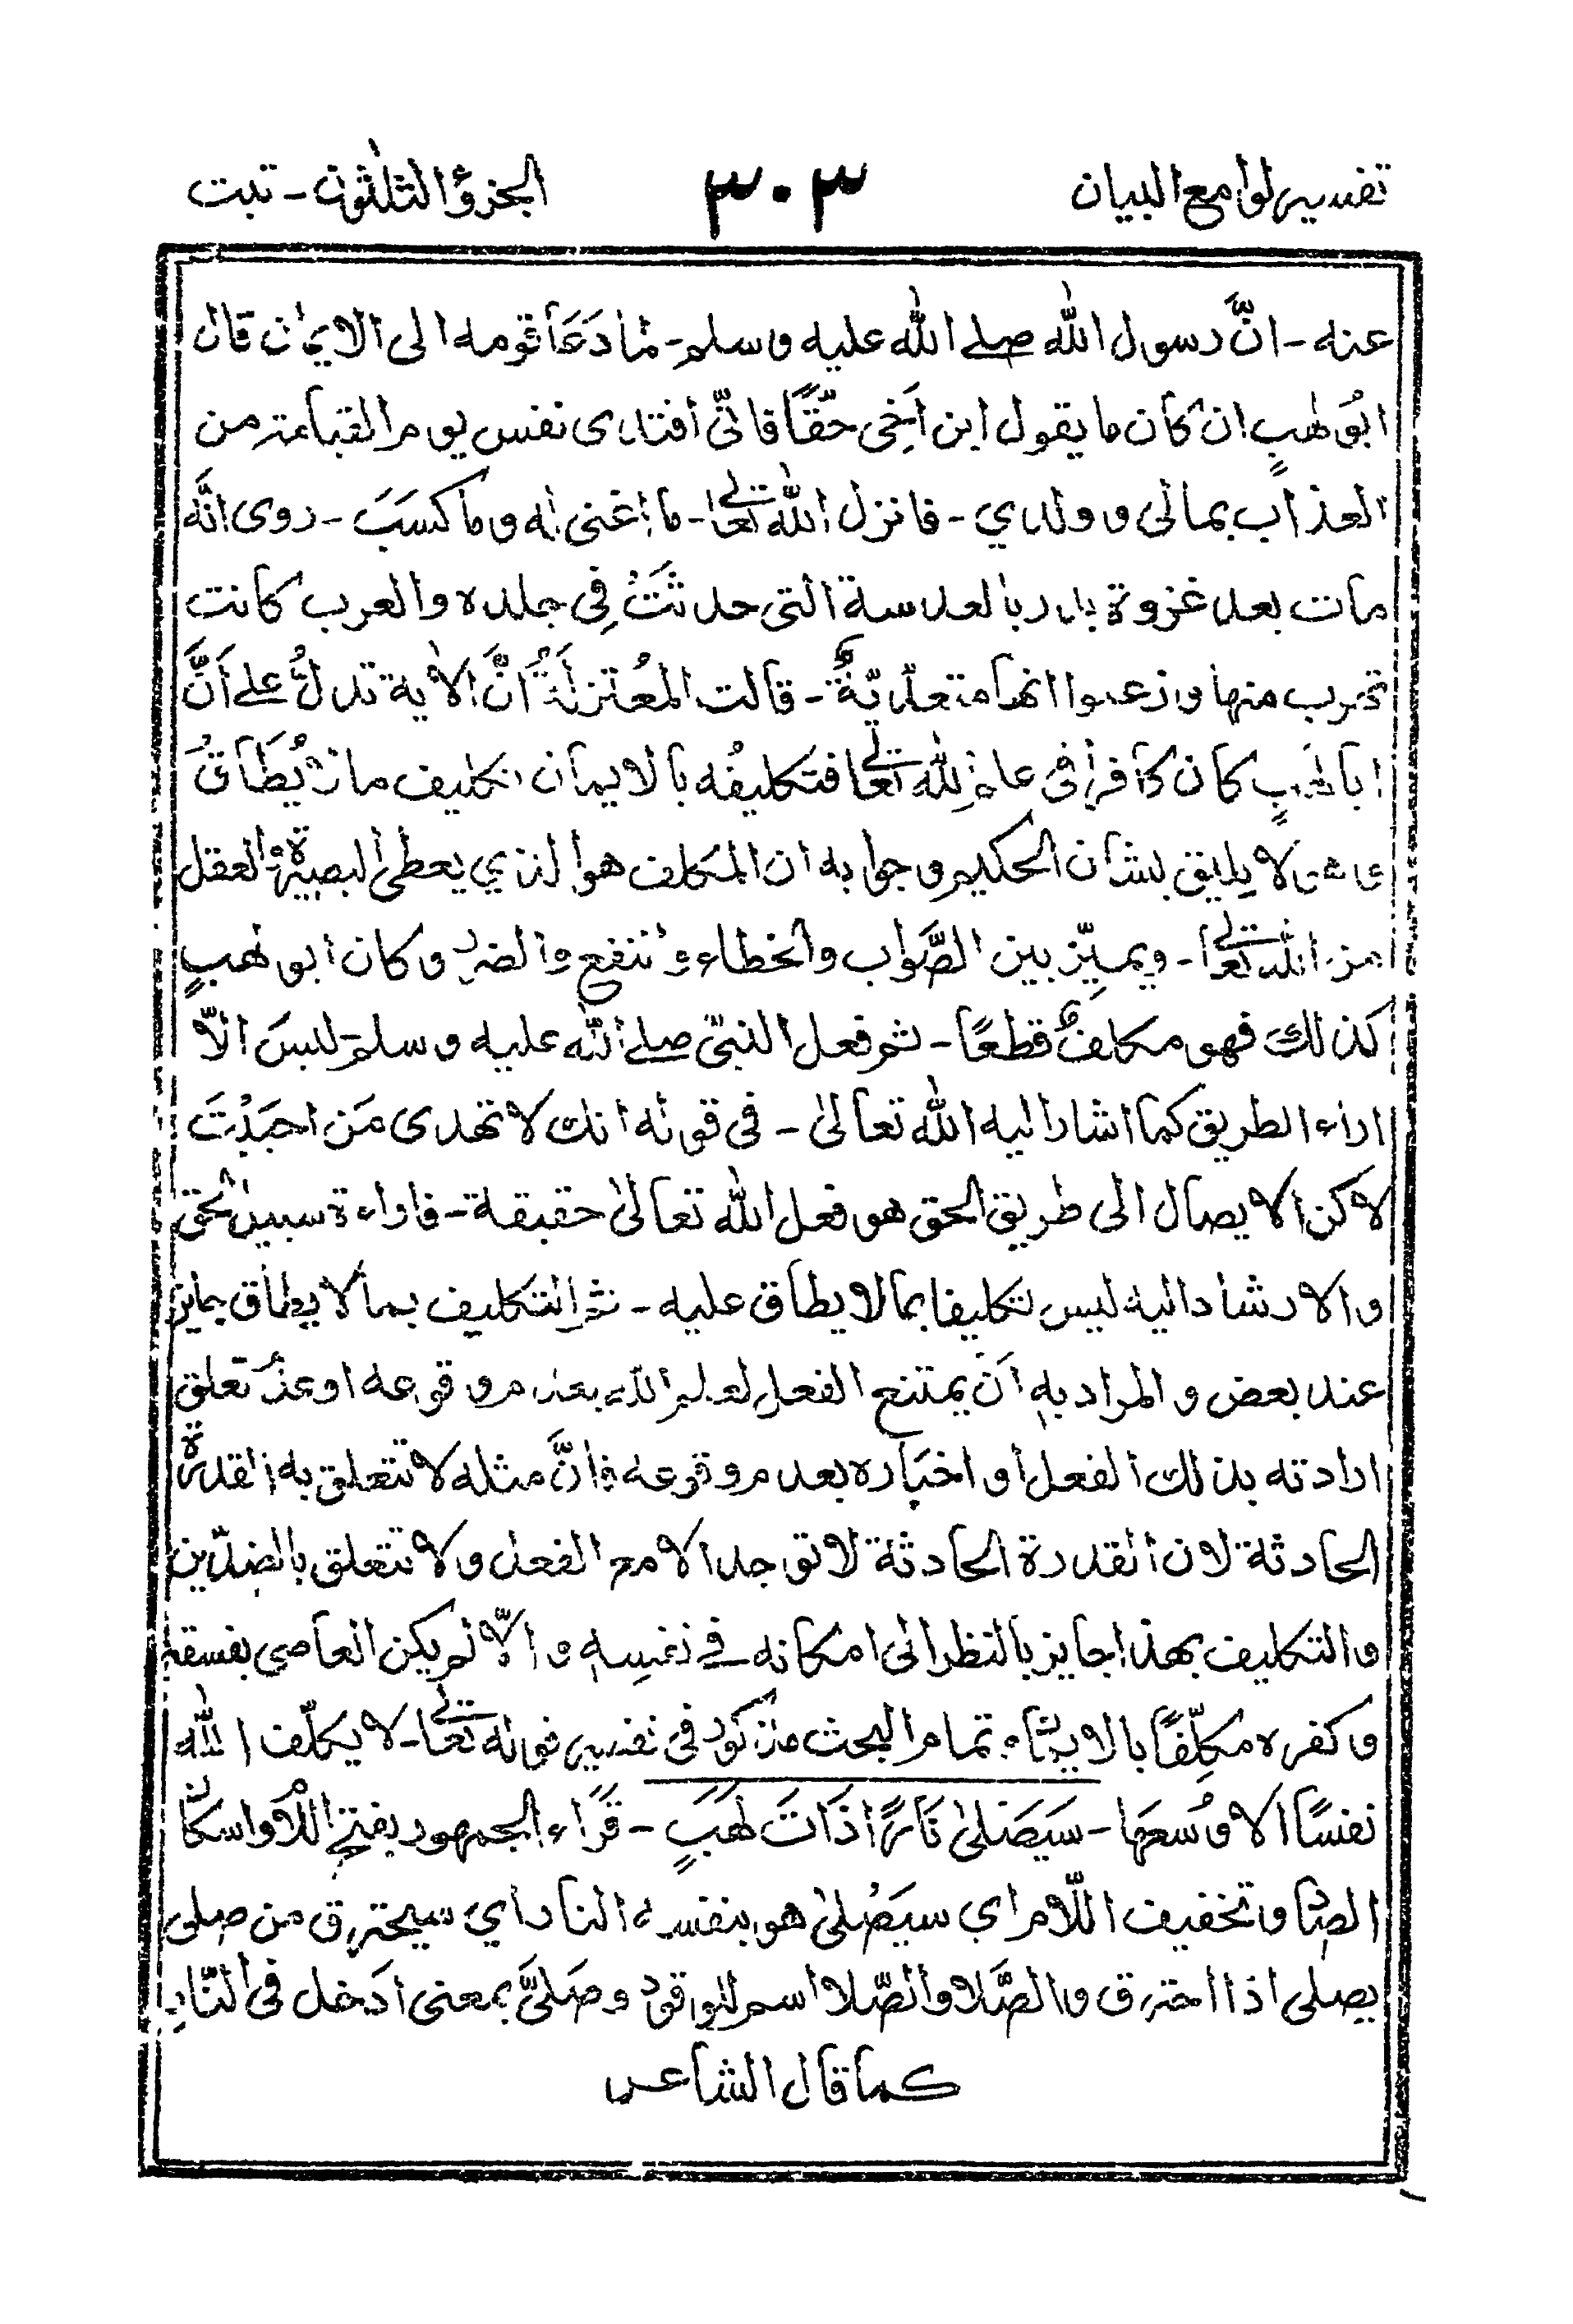 تفسير لوامع البيان ٣٠٣ الجزؤ الثلٰثون - تبت
عنه - انَّ رسول اللّٰه صلے اللّٰه عليه وسلم - لمّا دَعَا قومه الى الايمان قال
ابُو لهبٍ ان كان ما يقول ابن اَخِى حَقًّا فانّى افتدى نفسى يوم القيامة من
العذاب بمالى وولدي - فانزل اللّٰه تعالٰے - ما اغنى عنه ماله وما كسَبَ - روى انَّه
مات بعد غزوة بدر بالعدسة التى حدثَتْ فِى جلده والعرب كانت
تهرب منها وزعموا انها متعدّيةٌ - قالت المعُتزلَةُ انَّ الاٰية تدلُّ علے اَنَّ
ابا لهبٍ كان كافراً فى علمِ اللّٰه تعالٰے فتكليفُه بالايمان تكليف مالا يُطَاقُ
لا يليق بشان الحكيم وجوابه ان المكلف هو الذي يعطى البصيرة والعقل
من اللّٰه تعالٰے - ويميّز بين الصَّواب والخطاء والنفع والضرر وكان ابو لهبٍ
كذلك فهو مكلفٌ قطعًا - ثم فعل النبىّ صلے اللّٰه عليه وسلم ليسَ الاّ
اراء الطريق كما اشار اليه اللّٰه تعالىٰ - فى قوله انك لا تهدى مَن احبَبْتَ
لاكن الايصال الى طريق الحق هو فعل اللّٰه تعالىٰ حقيقة - فاراءة سبيل الحق
والارشاد اليه ليس تكليفا بمالا يطاق عليه - ثم التكليف بمالا يطاق جايز
عند بعض والمراد بهِ اَن يمتنع الفعل لعلم اللّٰه بعدم وقوعه او عدم تعلق
ارادته بذلك الفعل او اخبَاره بعدم وقوعه فانَّ مثله لا تتعلق به القدرة
الحادثة لان القدرة الحادثة لا توجد الا مع الفعل ولا تتعلق بالضدّين
والتكليف بهذا جايز بالنظر الى امكانه فے نفسِهٖ والاّ لم يكن العاصى بفسقه
وكفره مكلّفًا بالايمان وتمام البحث مذكور فى تفسير قوله تعالٰے - لا يكلّف اللّٰه
نفسًا الا وُسعهَا - سَيَصَلىٰ نَارًا ذَاتَ لهَبٍ - قَرَاء الجمهور بفتح اللام واسكان
الصاد وتخفيف اللّام اي سيَصْلىٰ هو بنفسه النار اي سيحترق من صلى
يصلى اذا احترق والصَّلا والصّلا اسم للوقود وصَلىَّ بمعنى ادَخل فى النّارِ
كما قال الشاعر